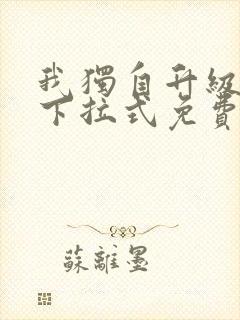 我獨自升級
下拉式免費
蘇離墨